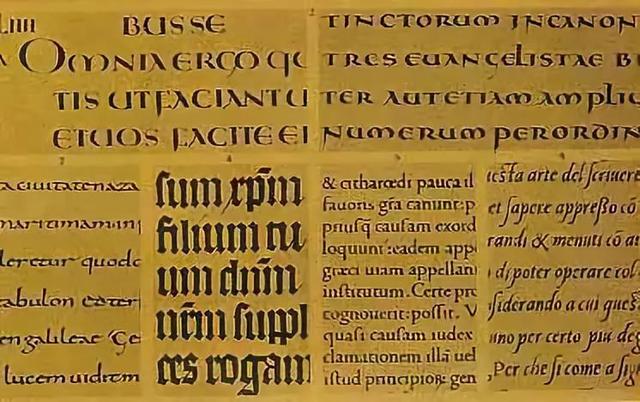 BUSSE
OMNIA ERGO QU
TIS UT FACIANT U
ET UOS FACITE EI
TINCTORUM IN CANON
TRES EUANGELISTAE B
TER AUT ETIAM AMPLIU
NUMERUM PER ORDIN
3
a ciuitate naza
maritimam in
leretur quodc
abulon et ter
en galileae Ge
lucem uidit m
4
sum xp̄m
filium tu
um dn̄m
nr̄m suppl
ces rogam
5
& citharœdi pauca il
fauoris gr̄a canunt: p
priusq̄ causam exord
loquunt: eadem app
græci uiam appellan
institutum. Certe pro
cognouerit: possit. V
quasi causam iudex
clamationem illā uel
istud principioꝝ gen
uesta arte del scriuere
et sapere appresso cō
randi & menuti cō
di poter operare tol
siderando a cui ques
uno per certo piu deg
Per che si come a sig